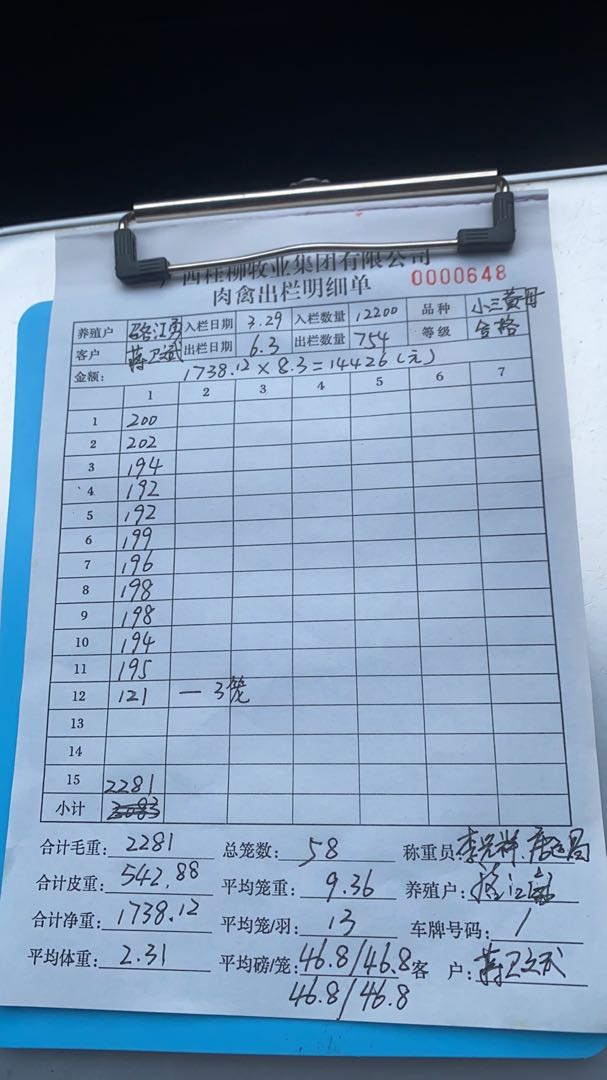 西桂柳牧业集团有限公司
肉禽出栏明细单 0000648
养殖户 江 入栏日期 3.29 入栏数量 12200 品种 小三黄母
客户 蒋卫斌 出栏日期 6.3 出栏数量 754 等级 合格
金额: 1738.12 × 8.3 = 14426 (元)
1 2 3 4 5 6 7
1 200
2 202
3 194
4 192
5 192
6 199
7 196
8 198
9 198
10 194
11 195
12 121 — 3笼
13
14
15 2281
小计 2083
合计毛重: 2281 总笼数: 58 称重员:
合计皮重: 542.88 平均笼重: 9.36 养殖户:
合计净重: 1738.12 平均笼/羽: 13 车牌号码: 1
平均体重: 2.31 平均磅/笼: 46.8/46.8 客 户: 蒋卫
46.8/46.8